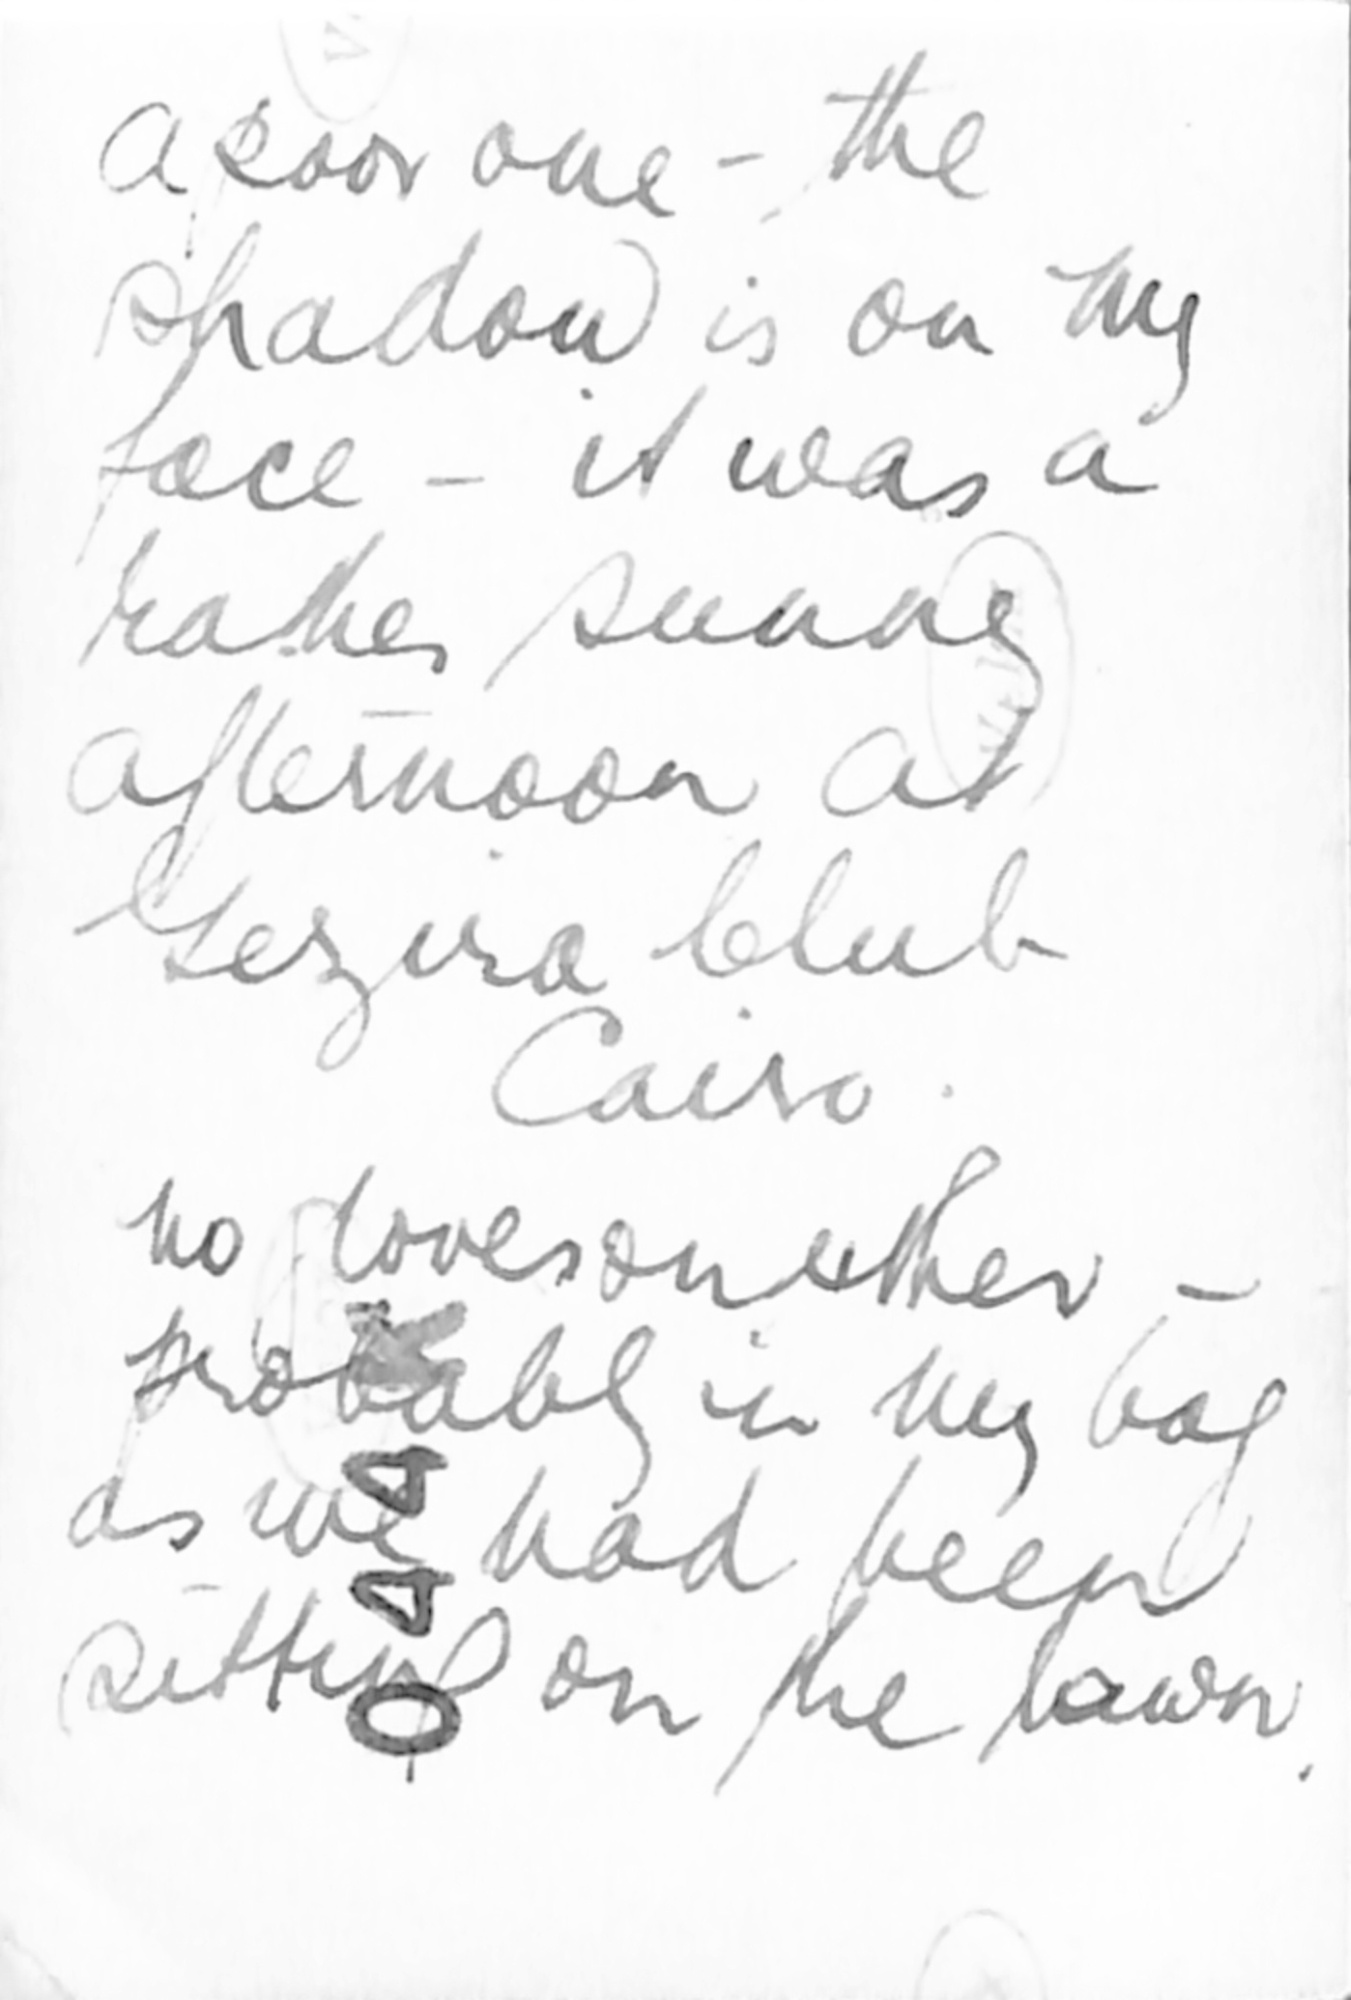 a poor one - the
shadow is on my
face - it was a
rather sunny
afternoon at
Gezira Club
Cairo.
no gloves on either -
probably in my bag
as we had been
sitting on the lawn.